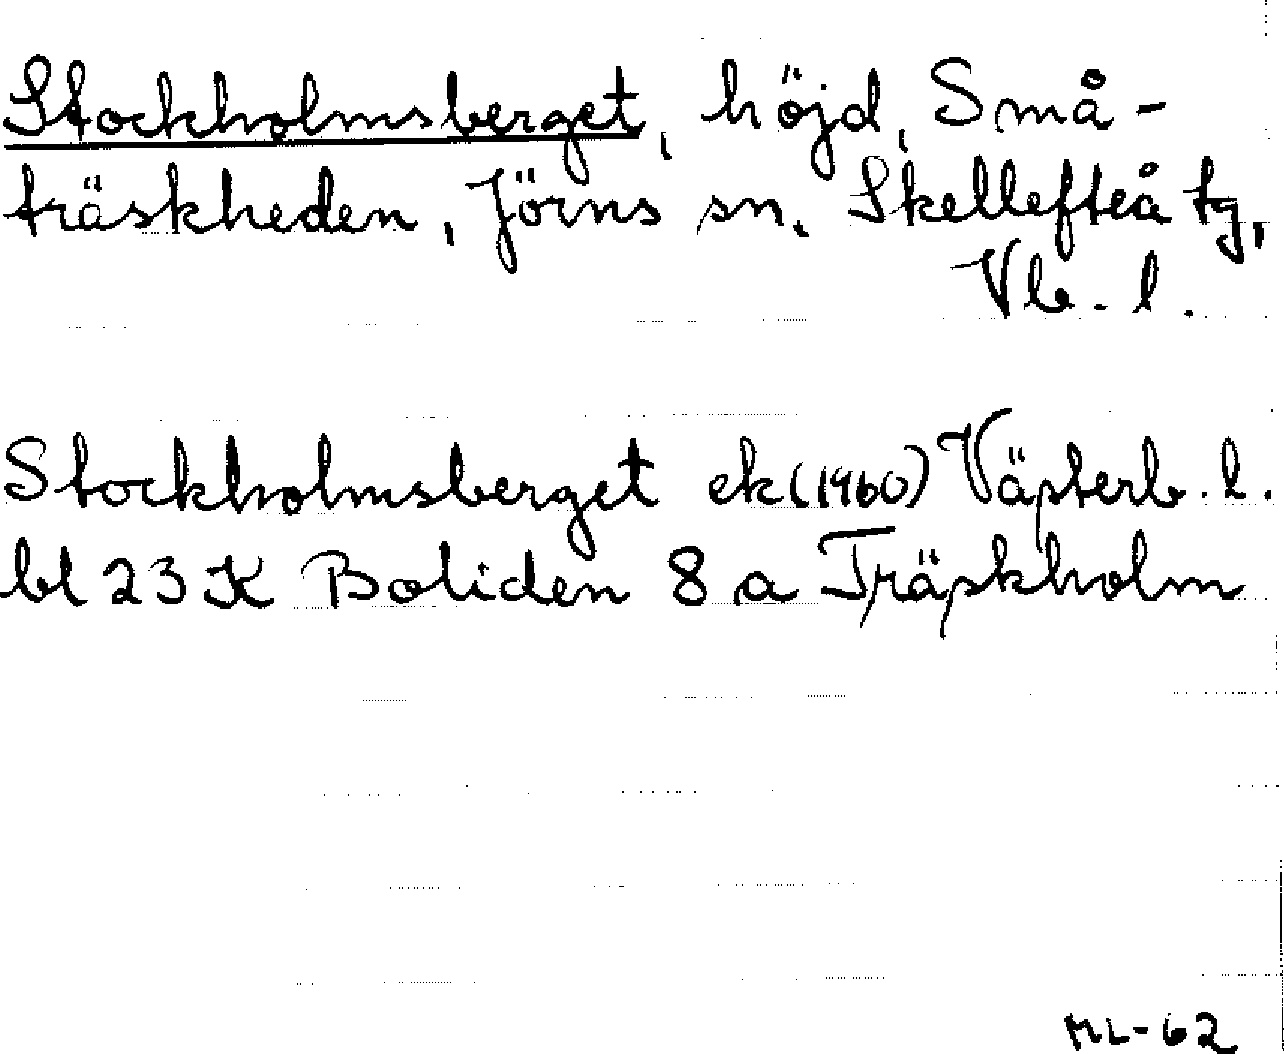 Stockholmsberget, höjd, Små-
träskheden, Jörns sn. Skellefteå tg,
Vb. l.
Stockholmsberget ek(1960) Västerb. l.
bl 23 K Boliden 8 a Träskholm
ML-62